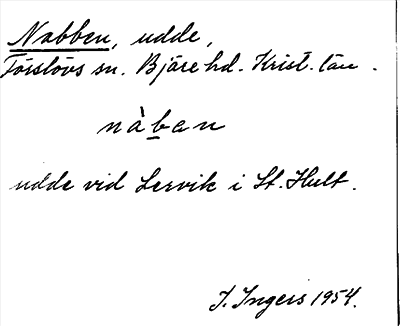 Nabben, udde,
Förslövs sn. Bjäre hd. Krist. län.
nàban
udde vid Lervik i St. Hult.
I. Ingers 1954.